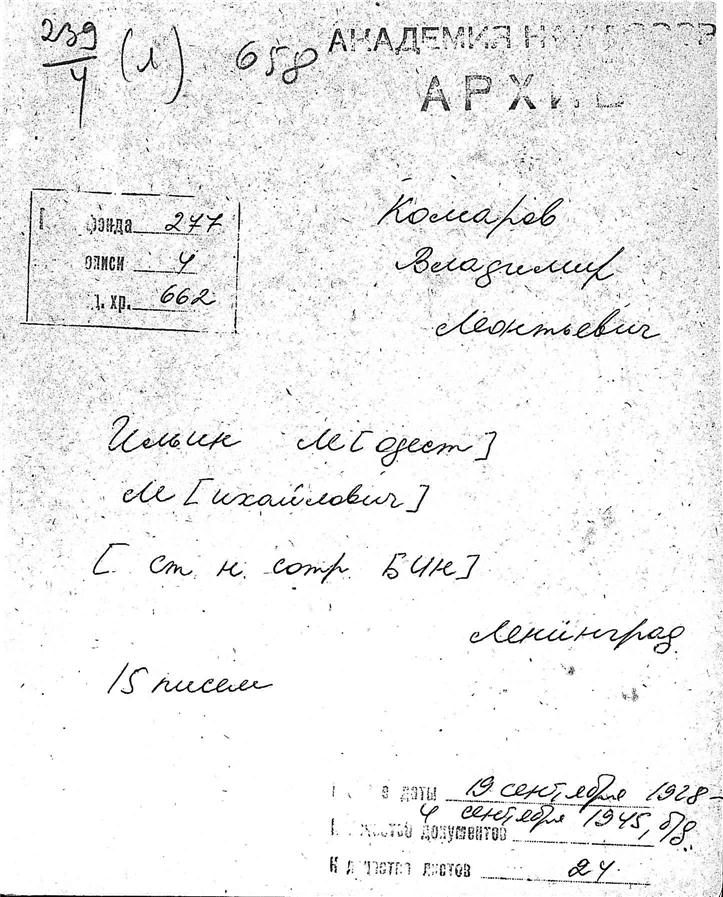 239/4 (л) 658
АКАДЕМИЯ НАУК СССР
АРХИВ
фонда 277
описи 4
д. хр. 662
Комаров
Владимир
Леонтьевич
Ильин М[одест]
М[ихайлович]
[ст. н. сотр. БИН]
Ленинград
15 писем
даты 19 сентября 1928 –
4 сентября 1945, б/д.
документов
листов 24